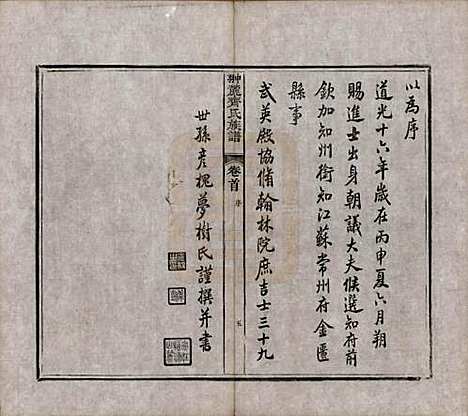 以爲序
道光十六年歲在丙申夏六月朔
賜進士出身朝議大夫候選知府前
欽加知州銜知江蘇常州府金匱
縣事
武英殿協脩翰林院庶吉士三十九
世孫彥槐夢樹氏謹撰并書
翀麓齊氏族譜
卷首
序
五